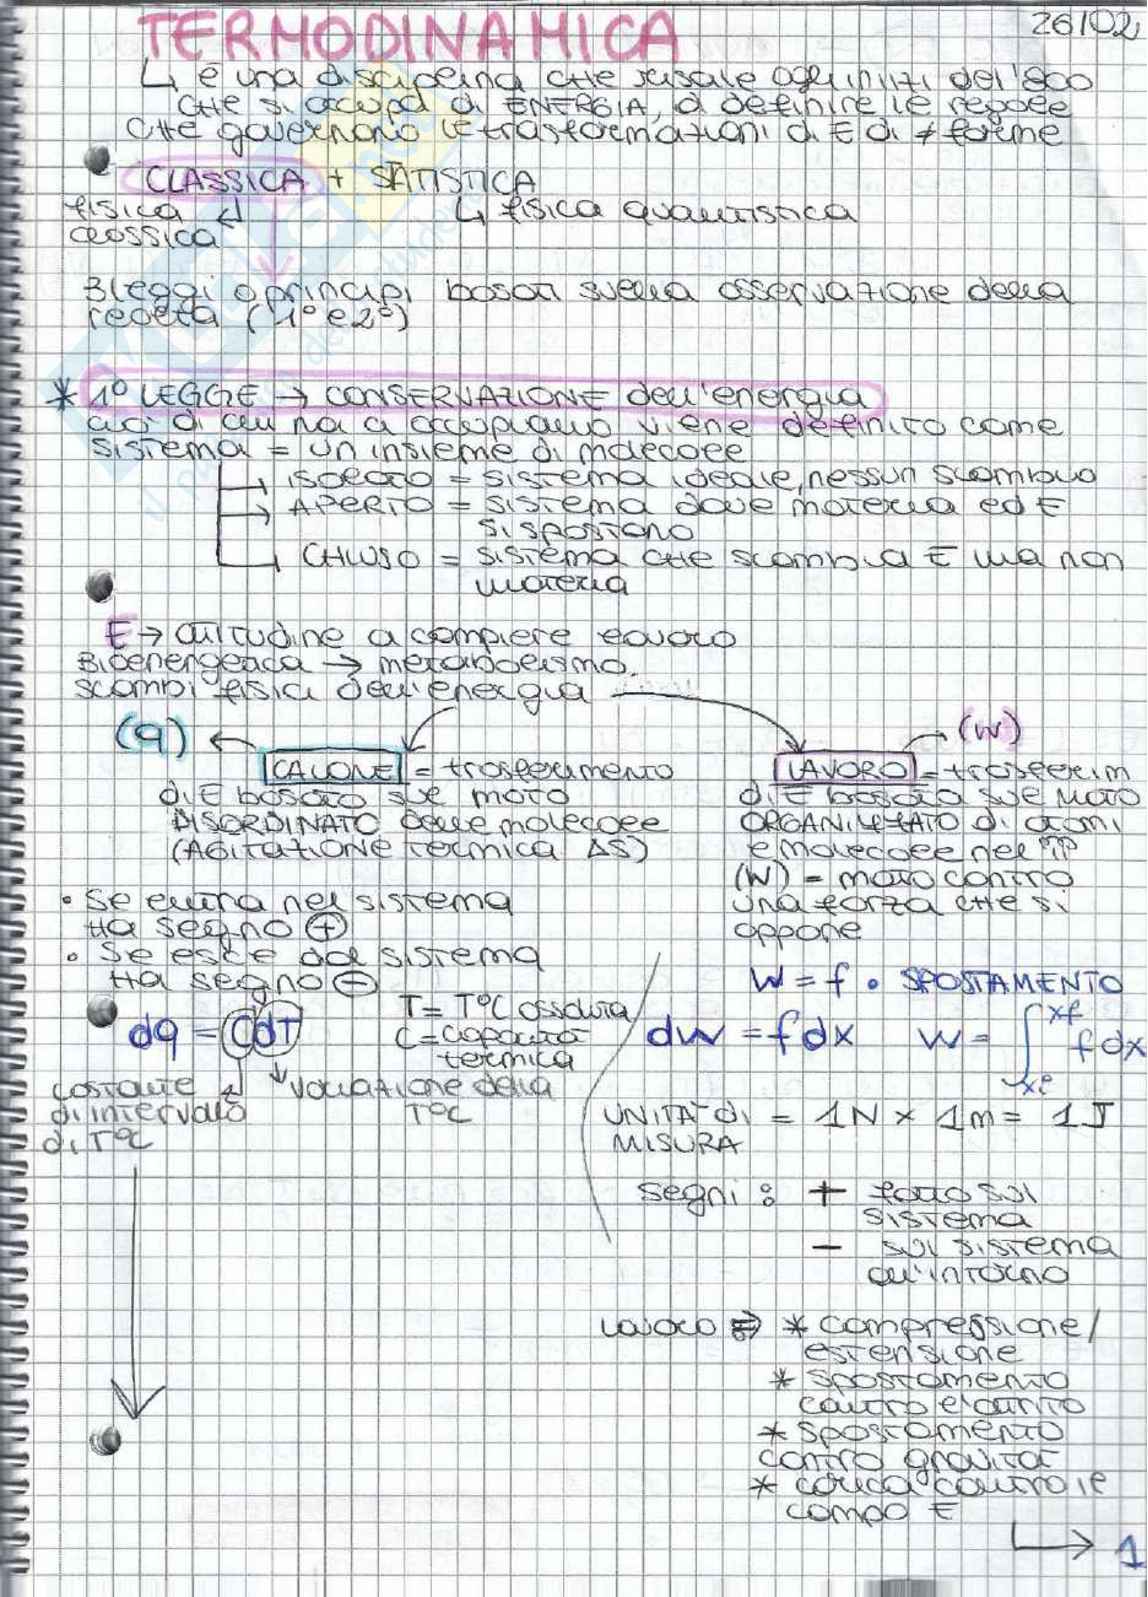 TERMODINAMICA
26/02
↳ è una disciplina che risale agli inizi del '800
che si occupa di ENERGIA, a definire le regole
che governano le trasformazioni di E di ≠ forme
CLASSICA + STATISTICA
fisica ↲ ↳ fisica quantistica
classica
3 leggi o principi basati sulla osservazione della
realtà (1° e 2°)
* 1° LEGGE → CONSERVAZIONE dell'energia
ciò di cui noi ci occupiamo viene definito come
sistema = un insieme di molecole
→ ISOLATO = sistema ideale, nessun scambio
→ APERTO = sistema dove materia ed E
si spostano
→ CHIUSO = sistema che scambia E ma non
materia
E → attitudine a compiere lavoro
Bioenergetica → metabolismo.
scambi fisici dell'energia
(q) ← CALORE = trasferimento
di E basato sul moto
DISORDINATO delle molecole
(AGITAZIONE termica ΔS)
• Se entra nel sistema
ha segno ⊕
• Se esce dal sistema
ha segno ⊖
dq = CdT
T = T°C assoluta
C = capacità
termica
costante
di intervallo
di T°C
↓ variazione della
T°C
(W)
LAVORO = trasferim
di E basata sul moto
ORGANIZZATO di atomi
e molecole nel
(W) = moto contro
una forza che si
oppone
W = f • SPOSTAMENTO
dw = f dx W = ∫ xf xi f dx
UNITÀ di = 1N × 1m = 1J
MISURA
segni : + fatto sul
sistema
- sul sistema
all'intorno
lavoro ⇒ * compressione/
estensione
* spostamento
contro l'attrito
* spostamento
contro gravità
* carica contro le
campo E
→ 1